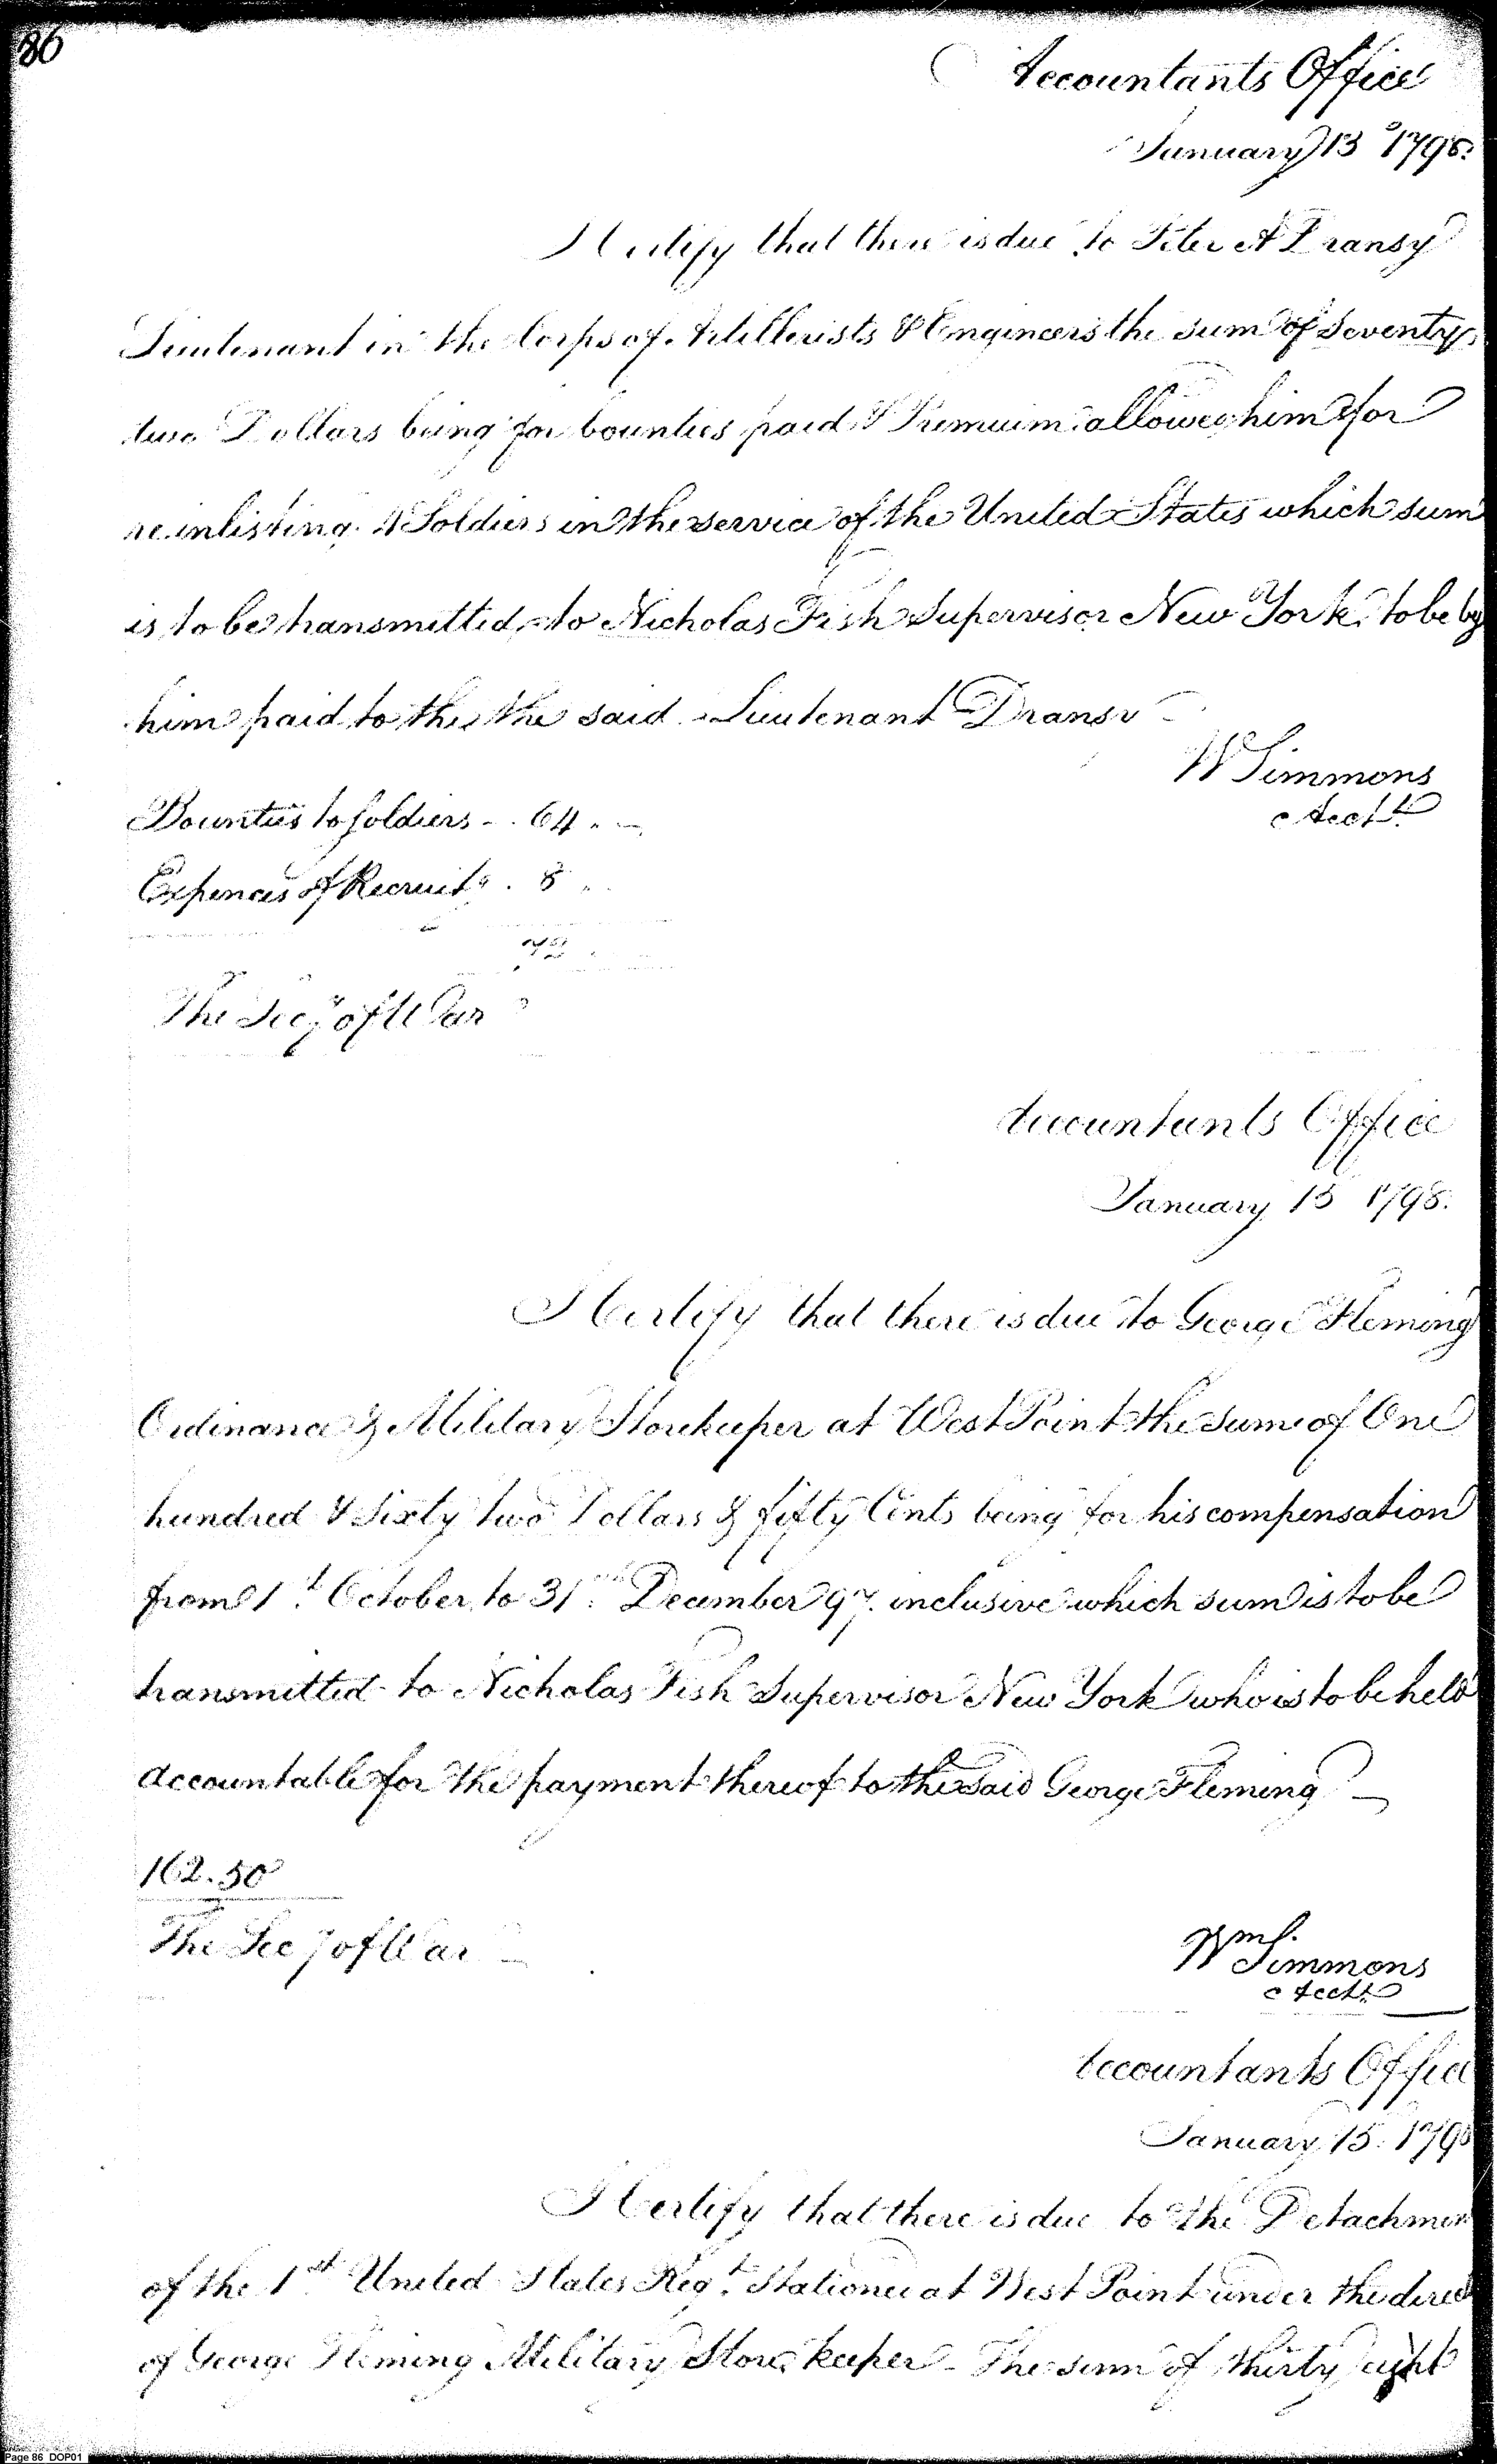 86
Accountants Office
January 13 1798.
I Certify that there is due to Peter A Dransy
Lieutenant in the Corps of Artillerists & Engineers the sum of Seventy
two Dollars being for bounties paid & Premium allowed him for
reinlisting 4 Soldiers in the service of the United States which sum
is to be transmitted to Nicholas Fish Supervisor New York to be by
him paid to the the said Lieutenant Dransy
W Simmons
Acct.
Bounties to Soldiers - . 64 . -
Expences of Recruitg . 8 ..
72
The Secy of War
Accountants Office
January 15 1798.
I Certify that there is due to George Fleming
Ordinance & Military Storekeeper at West Point the sum of One
hundred & Sixty two Dollars & fifty Cents being for his compensation
from 1st October to 31st December 97 inclusive which sum is to be
transmitted to Nicholas Fish Supervisor New York who is to be held
accountable for the payment thereof to the said George Fleming -
162.50
The Secy of War
Wm Simmons
Acctt
Accountants Office
January 15. 1798
I Certify that there is due to the Detachmen
of the 1st United States Regt Stationed at West Point under the direct
of George Fleming Military Store keeper - The sum of thirty eight
Page 86 DOP01